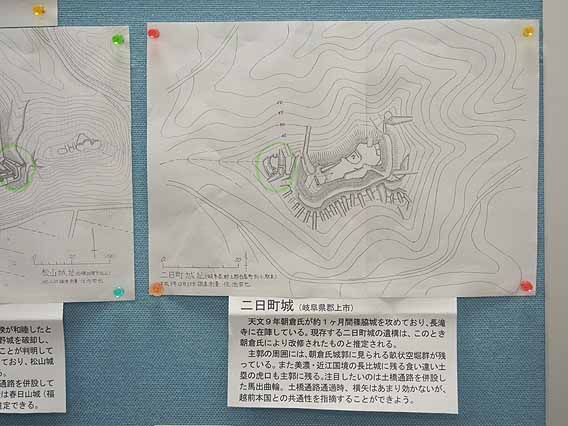 松山城址
二日町城址
二日町城（岐阜県郡上市）
天文９年朝倉氏が約１ヶ月間篠脇城を攻めており、長滝
寺に在陣している。現存する二日町城の遺構は、このとき
朝倉氏により改修されたものと推定される。
主郭の周囲には、朝倉氏城郭に見られる畝状空堀群が残
っている。また美濃・近江国境の長比城に残る食い違い土
塁の虎口も主郭に残る。注目したいのは土橋通路を併設し
た馬出曲輪。土橋通路通過時、横矢はあまり効かないが、
越前本国との共通性を指摘することができよう。
倹が和睦したと
野城を破却し、
ことが判明して
ており、松山城
通路を併設して
は春日山城（福
定できる。